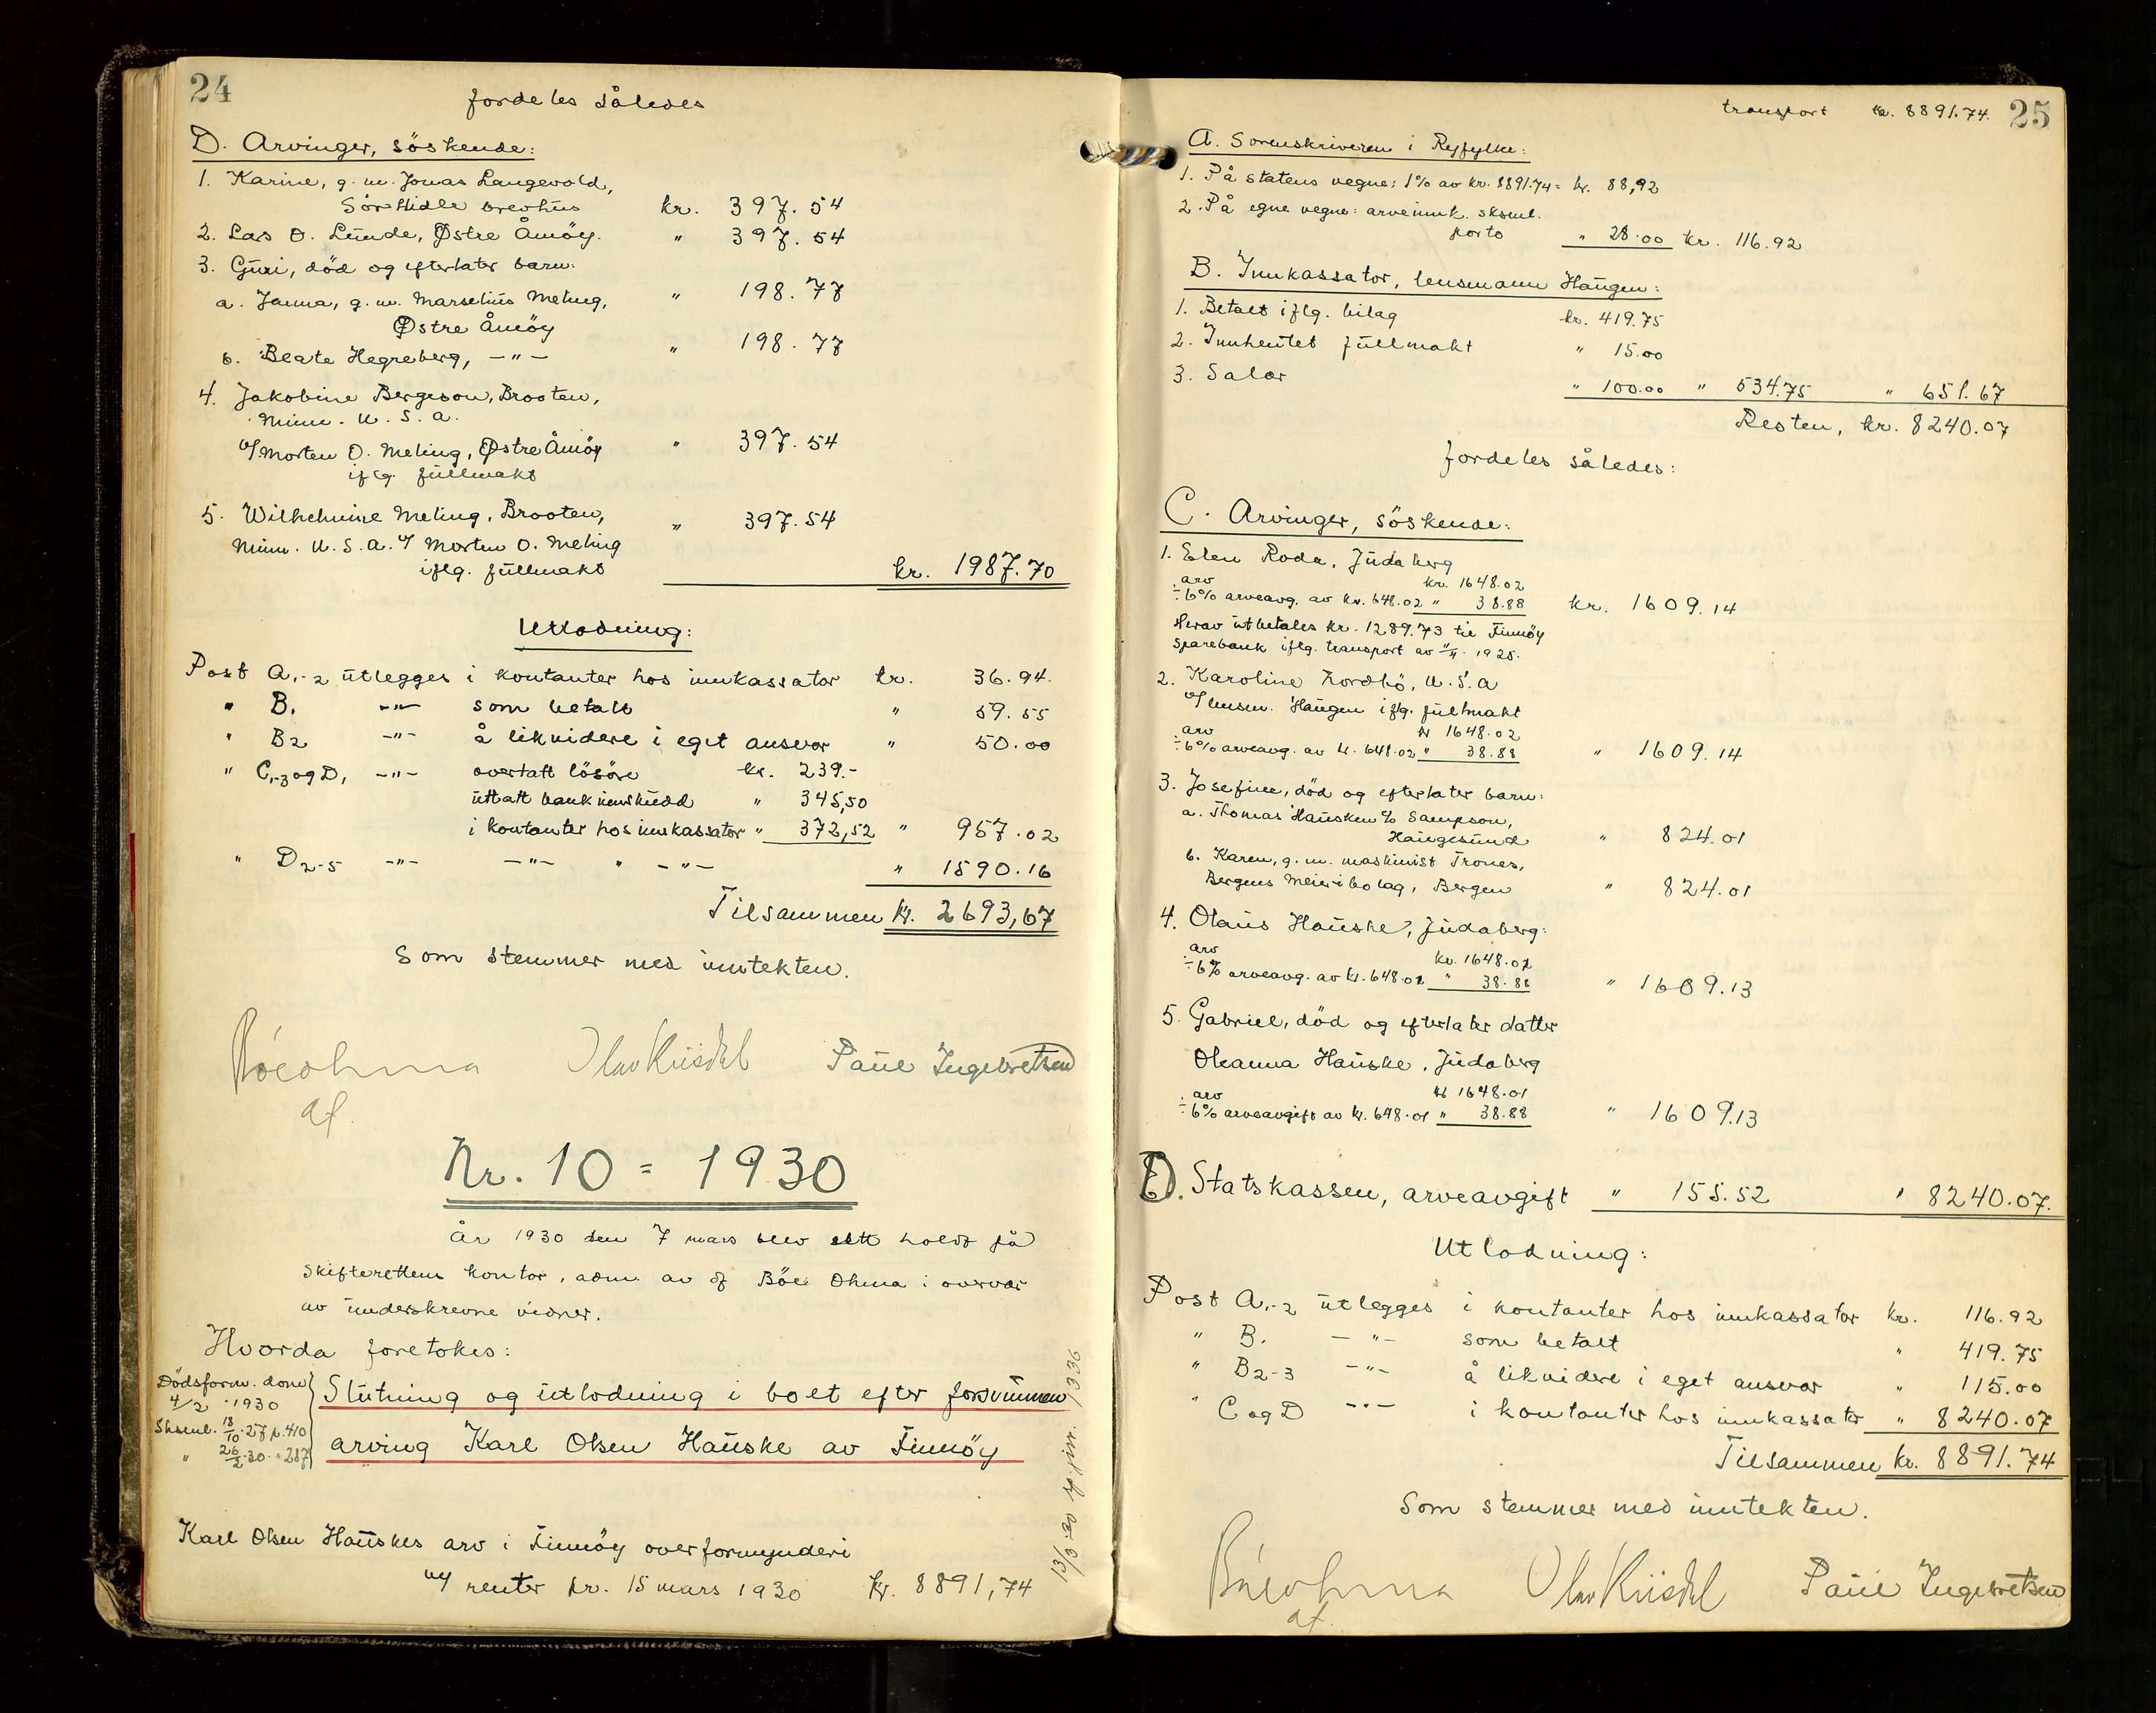 24
fordeles således
D. Arvinger, söskende:
1. Karine, g. m. Jonas Langevold,
Sör Hidle brevhus kr. 397.54
2. Lars O. Lunde, Østre Åmöy. " 397.54
3. Guri, död og efterlater barn:
a. Janna, g. m. Marselius Meling, " 198.77
Østre Åmöy
b. Beate Hegreberg, —"— " 198.77
4. Jakobine Bergeson, Brooten,
Minn. U. S. A.
v/ Morten O. Meling, Østre Åmöy " 397.54
iflg. fullmakt
5. Wilhelmine Meling, Brooten, " 397.54
Minn. U. S. A. v/ Morten O. Meling
iflg. fullmakt kr. 1987.70
Utlodning:
Post A1-2 utlegges i kontanter hos innkassator kr. 36.94.
" B1 —"— som betalt " 59.55
" B2 —"— å likvidere i eget ansvar " 50.00
" C1-3 og D1 —"— overtatt lösöre kr. 239.-
uttatt bankinnskudd " 345,50
i kontanter hos innkassator " 372,52 " 957.02
" D2-5 —"— —"— " —"— " 1590.16
Tilsammen kr. 2693,67
Som stemmer med inntekten.
Böe Ohma Olav Kiisdal Paul Ingebretsen
af.
Nr. 10 = 1930
År 1930 den 7 mars blev rett holdt på
skifterettens kontor, adm. av df Böe Ohma i overvær
av underskrevne vidner.
Hvorda foretokes:
Dödsform. dom
4/2 1930
Skseml. 18/10.27 p. 410
" 26/2.30 - 287
Slutning og utlodning i boet efter forsvunnen
arving Karl Olsen Hauske av Finnöy
13/3.30 jnr. 1336
Karl Olsen Hauskes arv i Finnöy overformynderi
m/ renter pr. 15 mars 1930 kr. 8891,74
25
transport kr. 8891.74.
A. Sorenskriveren i Ryfylke:
1. På statens vegne: 1% av kr. 8891.74 = kr. 88,92
2. På egne vegne: arveinnk. sksml.
porto " 28.00 kr. 116.92
B. Innkassator, lensmann Haugen:
1. Betalt iflg. bilag kr. 419.75
2. Innhentet fullmakt " 15.00
3. Salær " 100.00 " 534.75 " 651.67
Resten, kr. 8240.07
fordeles således:
C. Arvinger, söskende:
1. Elen Roda, Judaberg
arv kr. 1648.02
÷ 6% arveavg. av kr. 648.02 " 38.88 kr. 1609.14
Herav utbetales kr. 1289.73 til Finnöy
Sparebank iflg. transport av 1925.
2. Karoline Nordbö, U.S.A
v/ lensm. Haugen iflg. fullmakt
arv kr 1648.02
÷ 6% arveavg. av kr. 648.02 " 38.88 " 1609.14
3. Josefine, död og efterlater barn:
a. Thomas Hausken c/o Sampson,
Haugesund " 824.01
b. Karen, g. m. maskinist Trones,
Bergens Meieribolag, Bergen " 824.01
4. Olaus Hauske, Judaberg:
arv kr. 1648.01
÷ 6% arveavg. av kr. 648.01 " 38.88 " 1609.13
5. Gabriel, död og efterlater datter
Oleanna Hauske, Judaberg
arv kr 1648.01
÷ 6% arveavgift av kr. 648.01 " 38.88 " 1609.13
D. Statskassen, arveavgift " 155.52 " 8240.07.
Utlodning:
Post A1-2 utlegges i kontanter hos innkassator kr. 116.92
" B1 —"— som betalt " 419.75
" B2-3 —"— å likvidere i eget ansvar " 115.00
" C og D —"— i kontanter hos innkassator " 8240.07
Tilsammen kr. 8891.74
Som stemmer med inntekten.
Böe Ohma Olav Kiisdal Paul Ingebretsen
af.